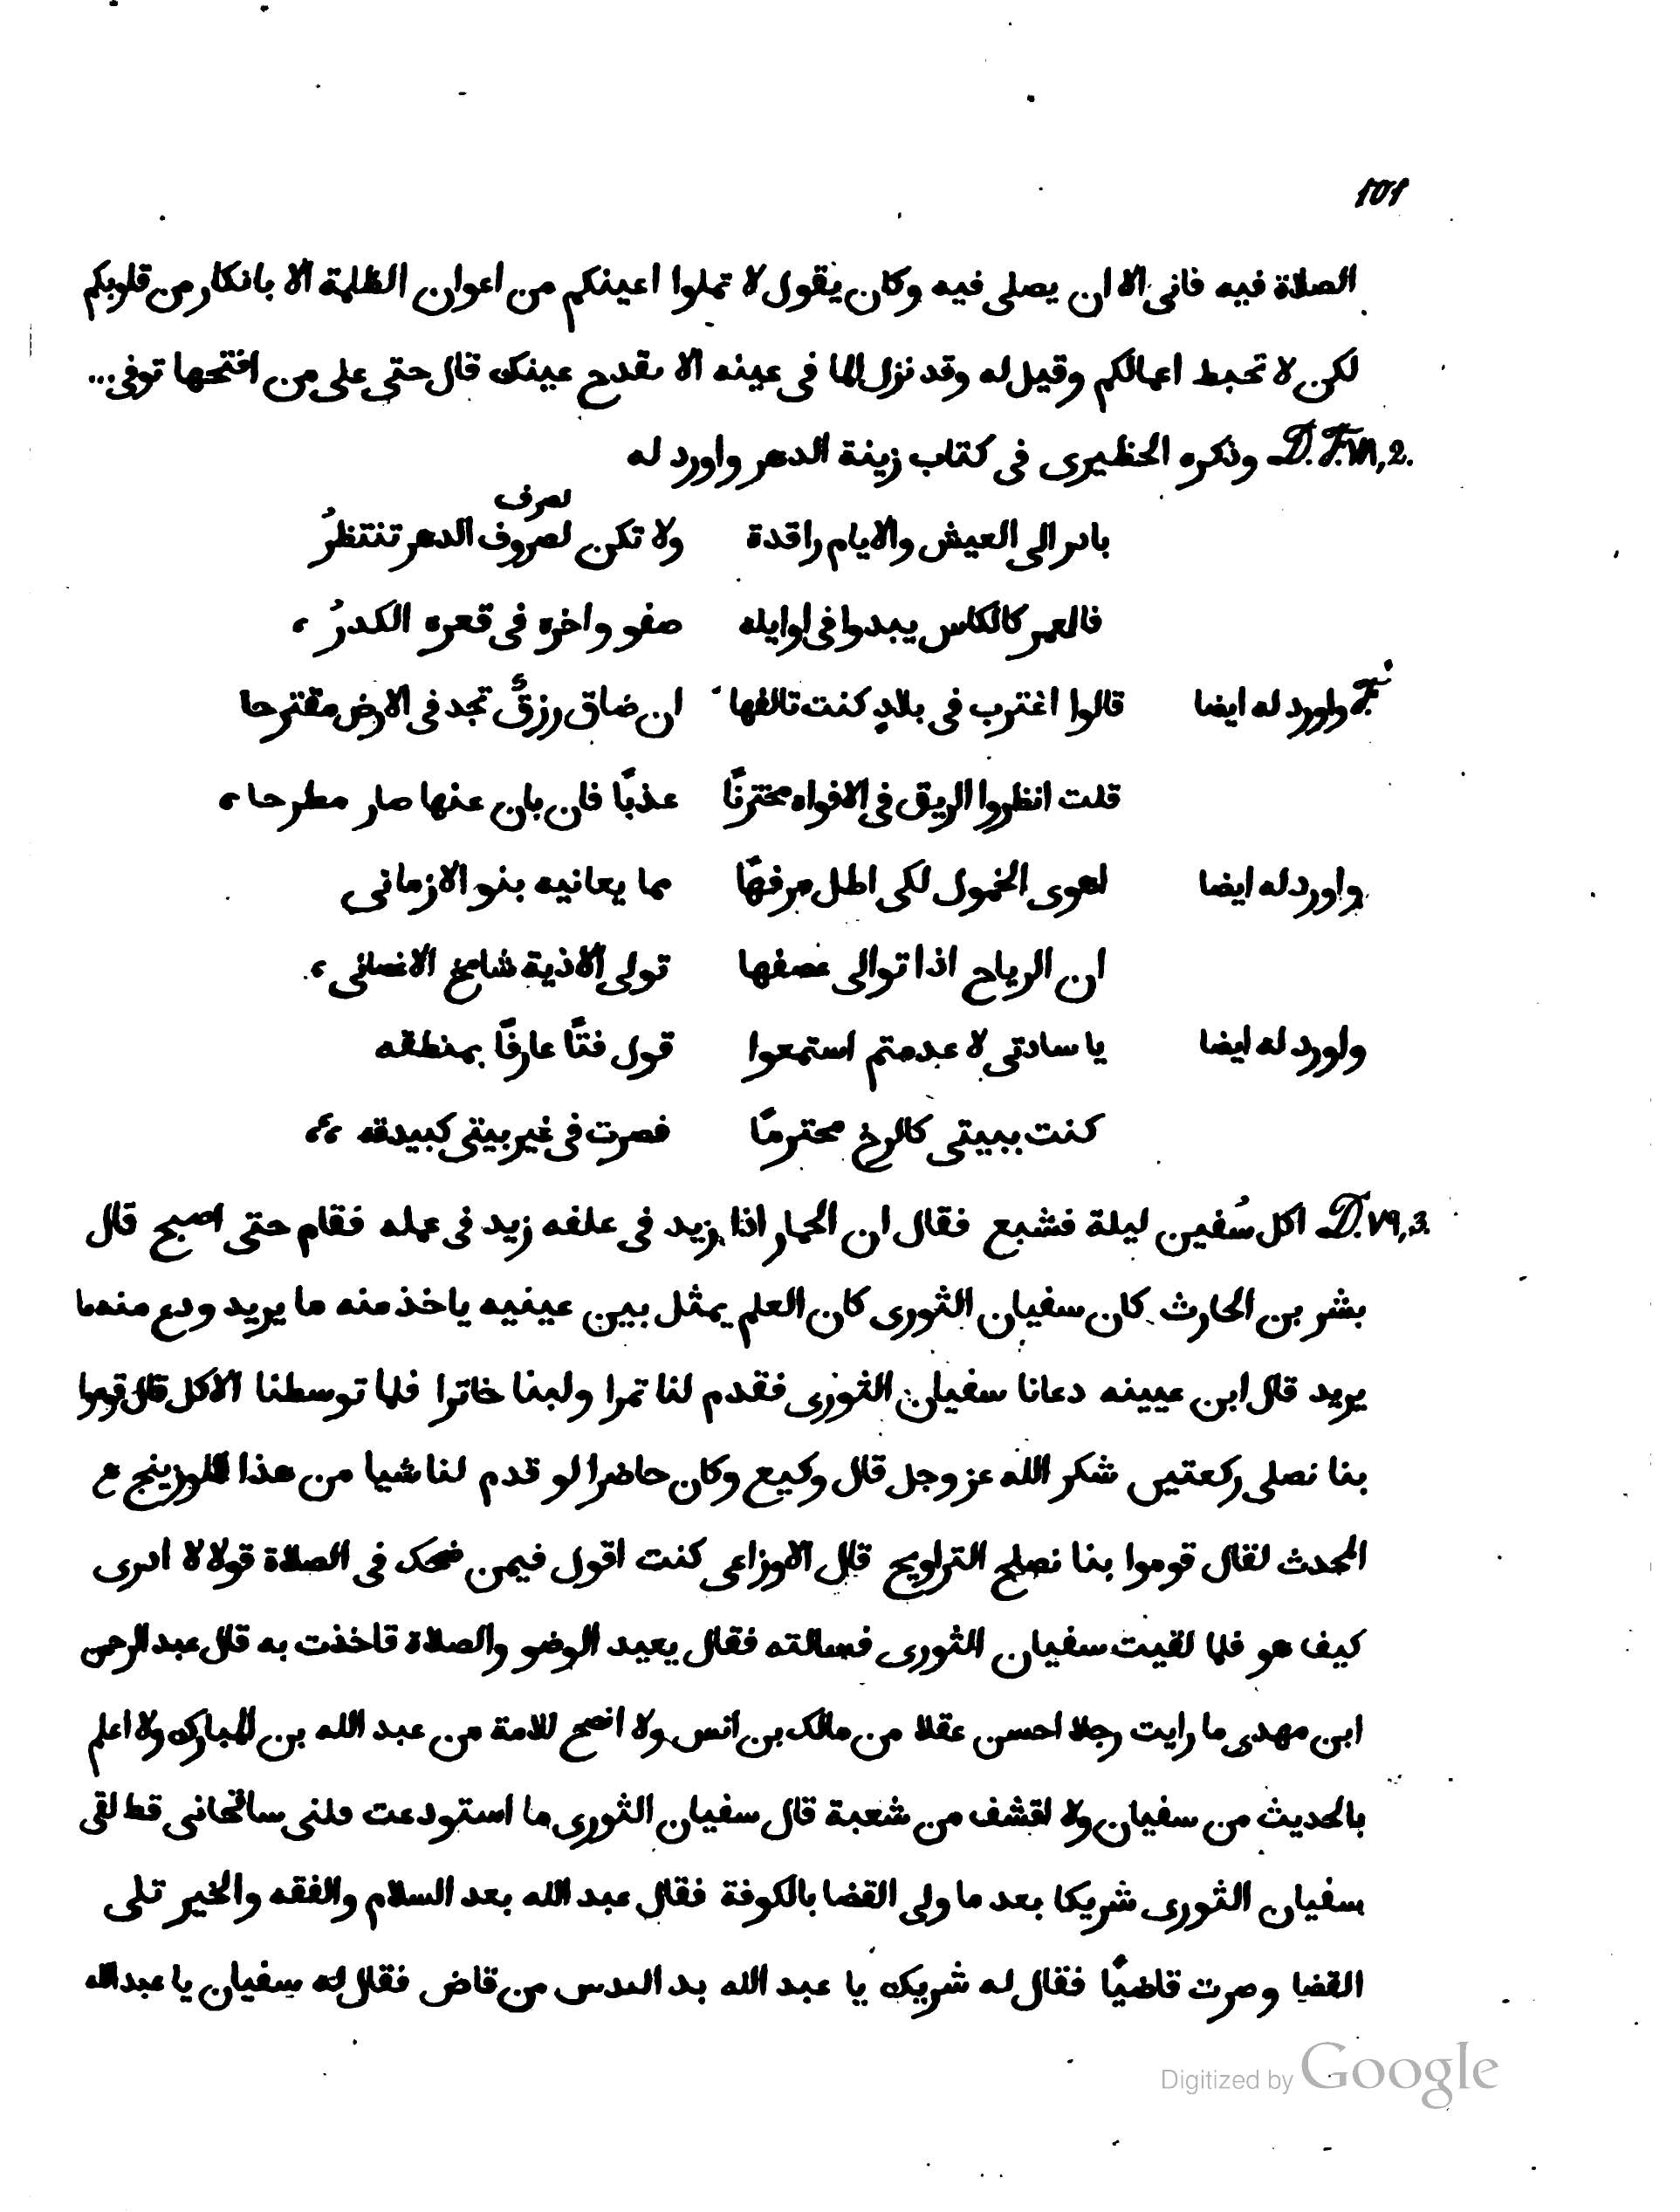 101
الصلاة فيه فانى الا ان يصلى فيه وكان يقول لا تملوا اعينكم من اعوان الظلمة الا بانكار من قلوبكم
لكن لا تحبط اعمالكم وقيل له وقد نزل الما فى عينه الا ىقدح عينك قال حتى على من افتحها توفى...
D. F. ٧٨, 2. وذكره الحظيرى فى كتاب زينة الدهر واورد له
لصرف
بادر الى العيش والايام راقدة ولا تكن لصروف الدهر تنتظرُ
فالعمر كالكاس يبدوا فى اوايله صفو واخره فى قعره الكدرُ ،
F. واورد له ايضا قالوا اغترب فى بلادٍ كنت تالفها ان ضاق رزقٌ تجد فى الارض مقترحا
قلت انظروا الريق فى الافواه مختزنًا عذبًا فان بان عنها صار مطرحا ،
واورد له ايضا اهوى الخمول لكى اظل مرفهًا مما يعانيه بنو الازمانى
ان الرياح اذا توالى عصفها تولى الاذية شامخ الاغصانى ،
واورد له ايضا يا سادتى لا عدمتم استمعوا قول فتًا عارفًا بمنطقه
كنت ببيتى كالرخ محترمًا فصرت فى غير بيتى كبيدقه ،،
D. ٧٩, 3. اكل سُفين ليلة فشبع فقال ان الحمار اذا زيد فى علفه زيد فى عمله فقام حتى اصبح قال
بشر بن الحارث كان سفيان الثورى كان العلم يمثل بين عينيه ياخذ منه ما يريد ودع منه ما
يريد قال ابن عيينه دعانا سفيان الثورى فقدم لنا تمرا ولبنا خاثرا فلما توسطنا الاكل قال قوموا
بنا نصلى ركعتين شكر الله عز وجل قال وكيع وكان حاضرا لو قدم لنا شيا من هذا اللوزينج ع
المحدث لقال قوموا بنا نصلح التراويح قال الاوزاعى كنت اقول فيمن ضحك فى الصلاة قولا لا ادرى
كيف هو فلما لقيت سفيان الثورى فسالته فقال يعيد الوضو والصلاة فاخذت به قال عبد الرحمن
ابن مهدى ما رايت رجلا احسن عقلا من مالك بن انس ولا انصح للامة من عبد الله بن المبارك ولا اعلم
بالحديث من سفيان ولا اقشف من شعبة قال سفيان الثورى ما استودعت قلبى سا فخاننى قط لقى
سفيان الثورى شريكا بعد ما ولى القضا بالكوفة فقال عبد الله بعد السلام والفقه والخير تلى
القضا وصرت قاضيًا فقال له شريك يا عبد الله بد من قاض فقال له سفيان يا عبد الله
Digitized by Google